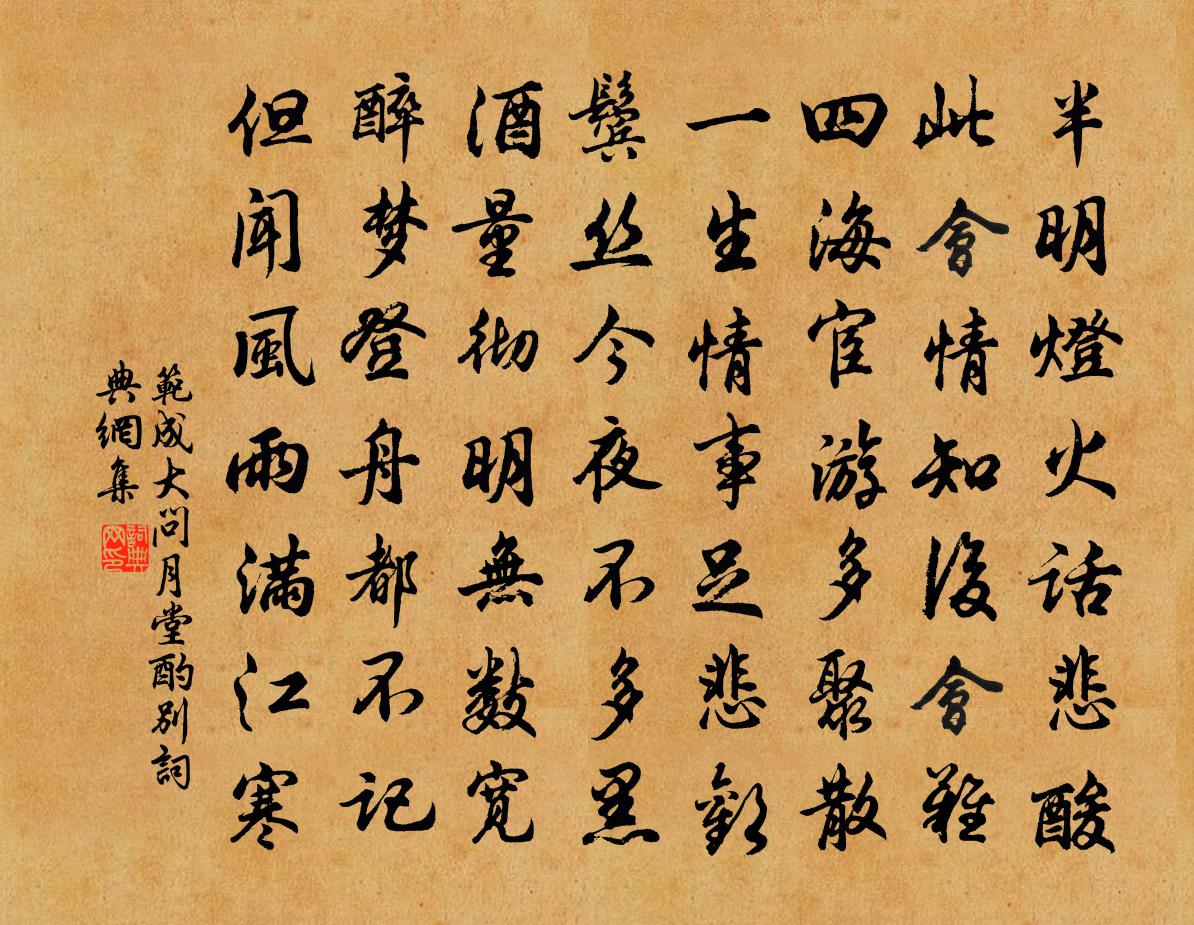 半明燈火話悲酸
此會情知後會難
四海宦游多聚散
一生情事足悲歡
鬓丝今夜不多黑
酒量彻明無數寬
醉梦登舟都不记
但闻風雨滿江寒
範成大問月堂酌别詞
典網集
詞典网印